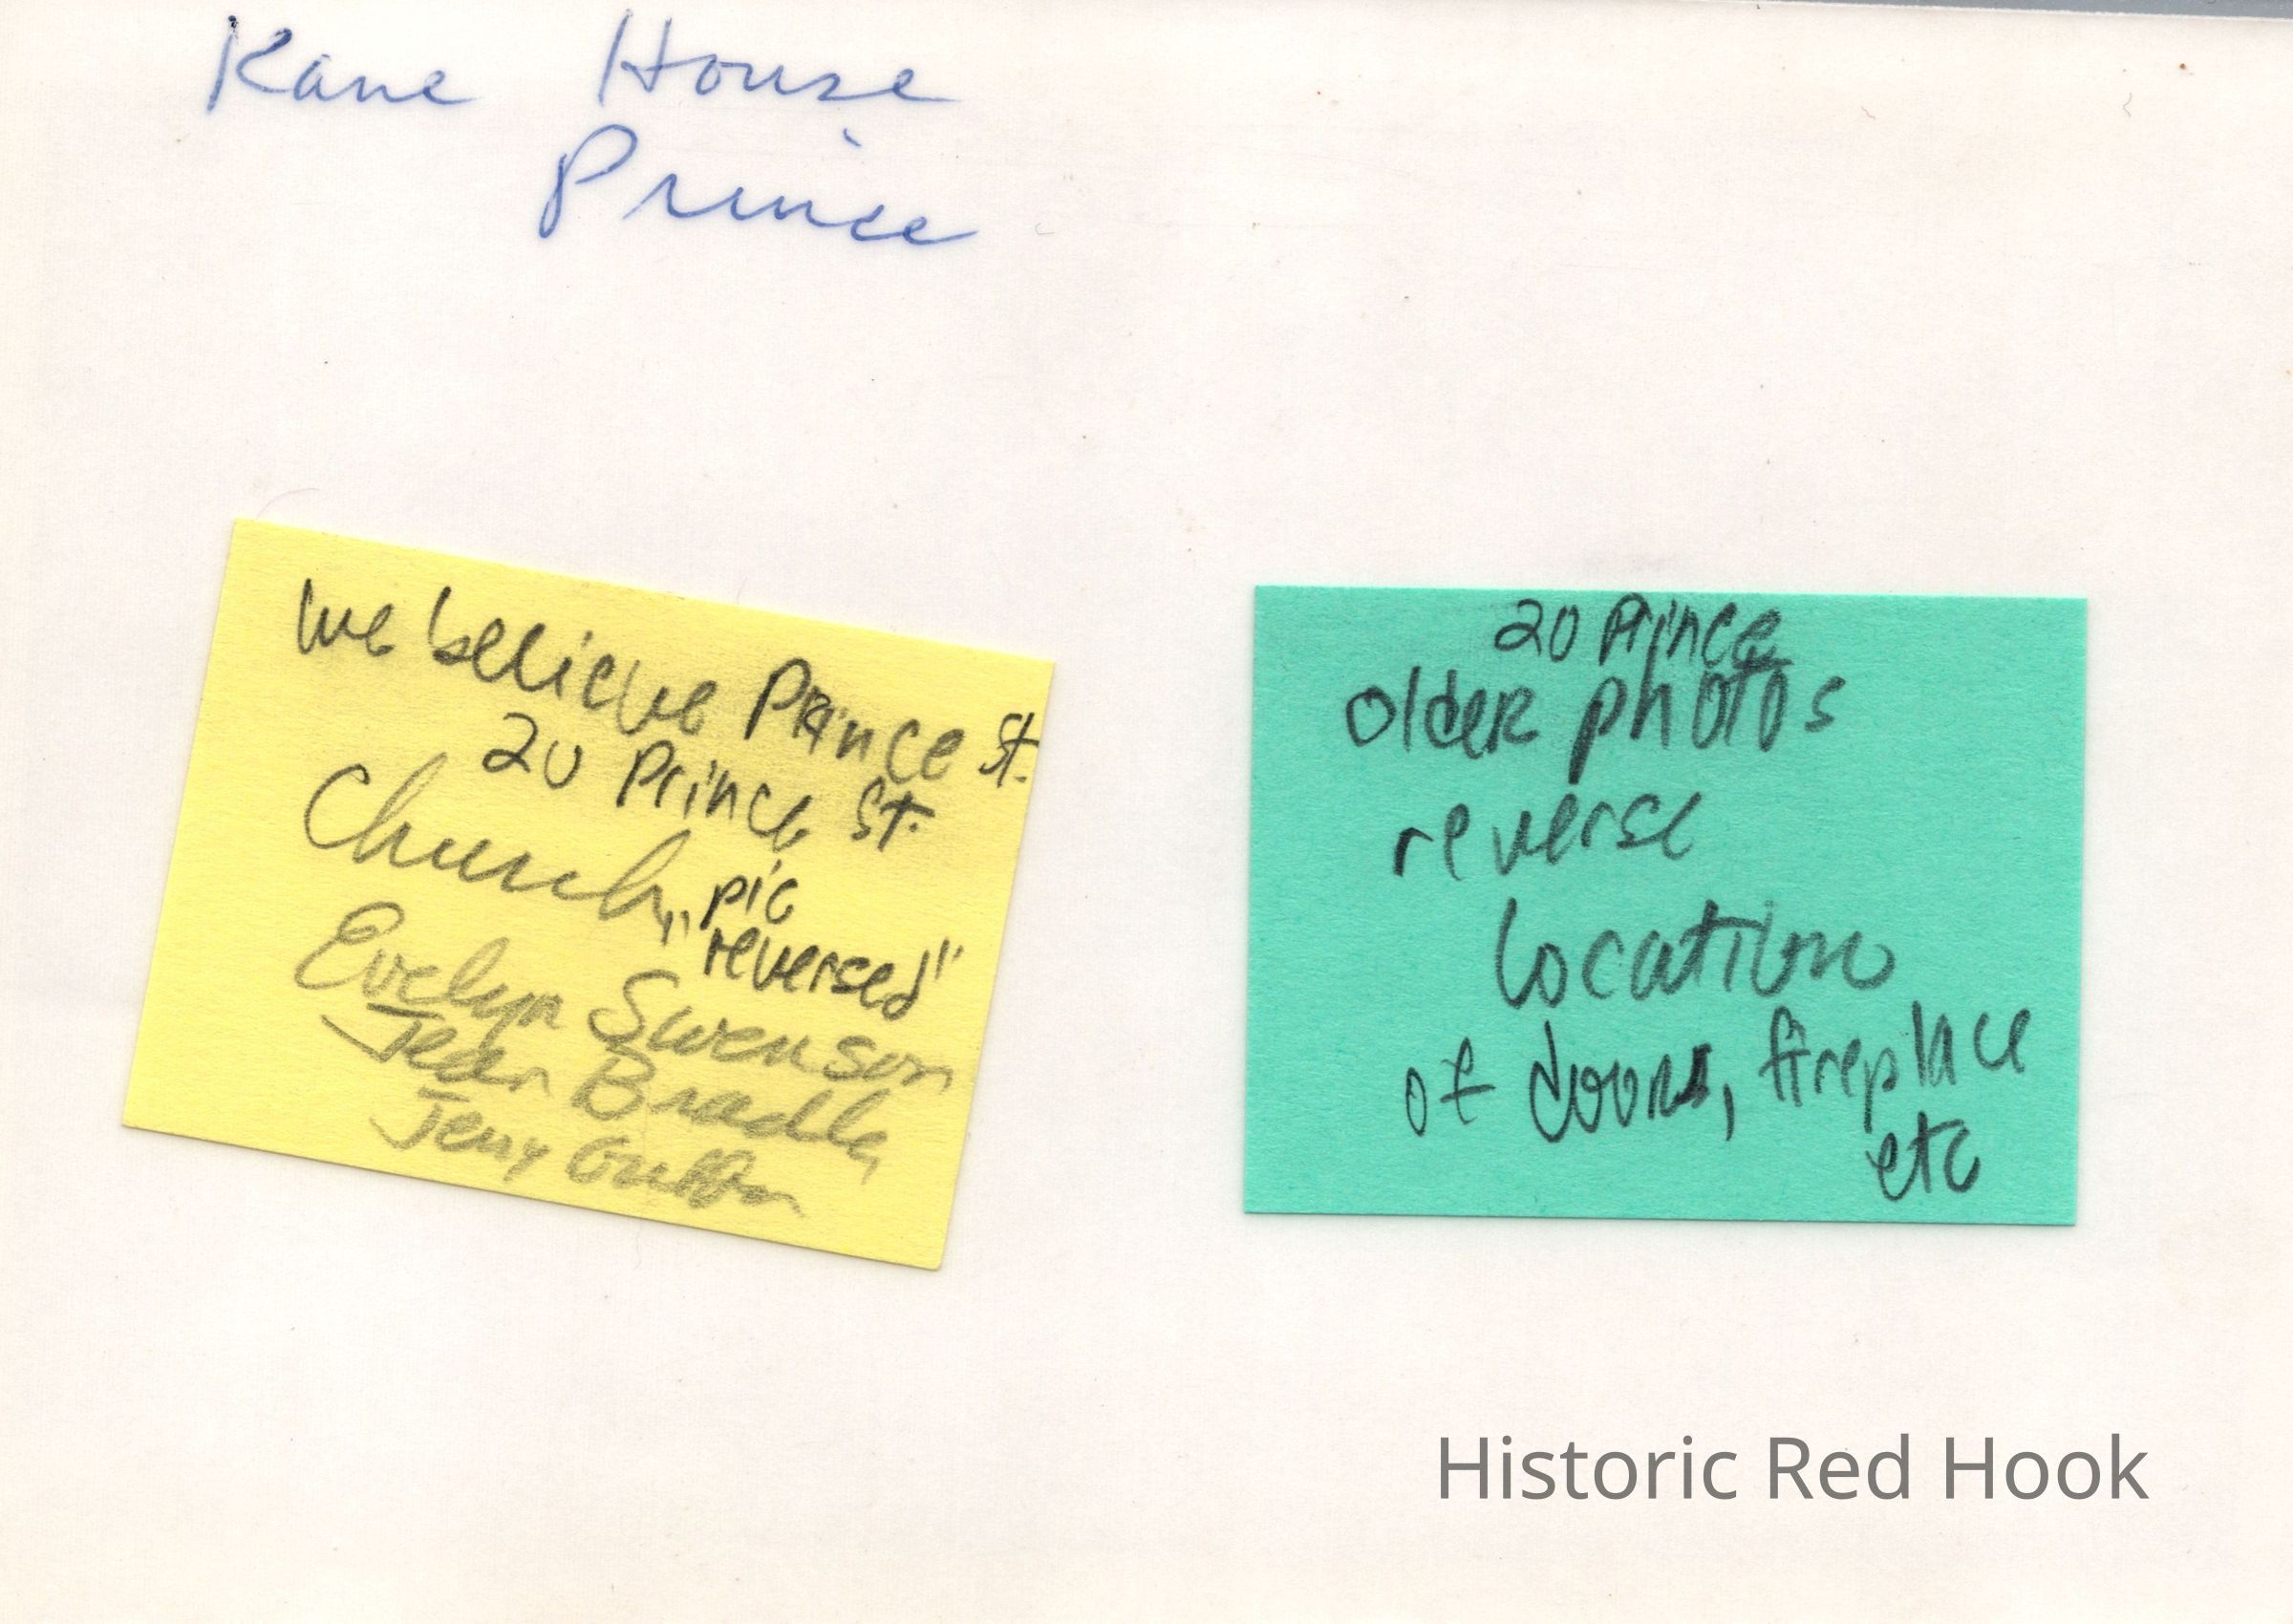 Kane House
Prince
we believe Prince St.
20 Prince St.
Church, pic
"reversed"
Evelyn Swenson
Jean Bradley
Jerry
20 Prince
older photos
reverse
location
of doors, fireplace
etc
Historic Red Hook